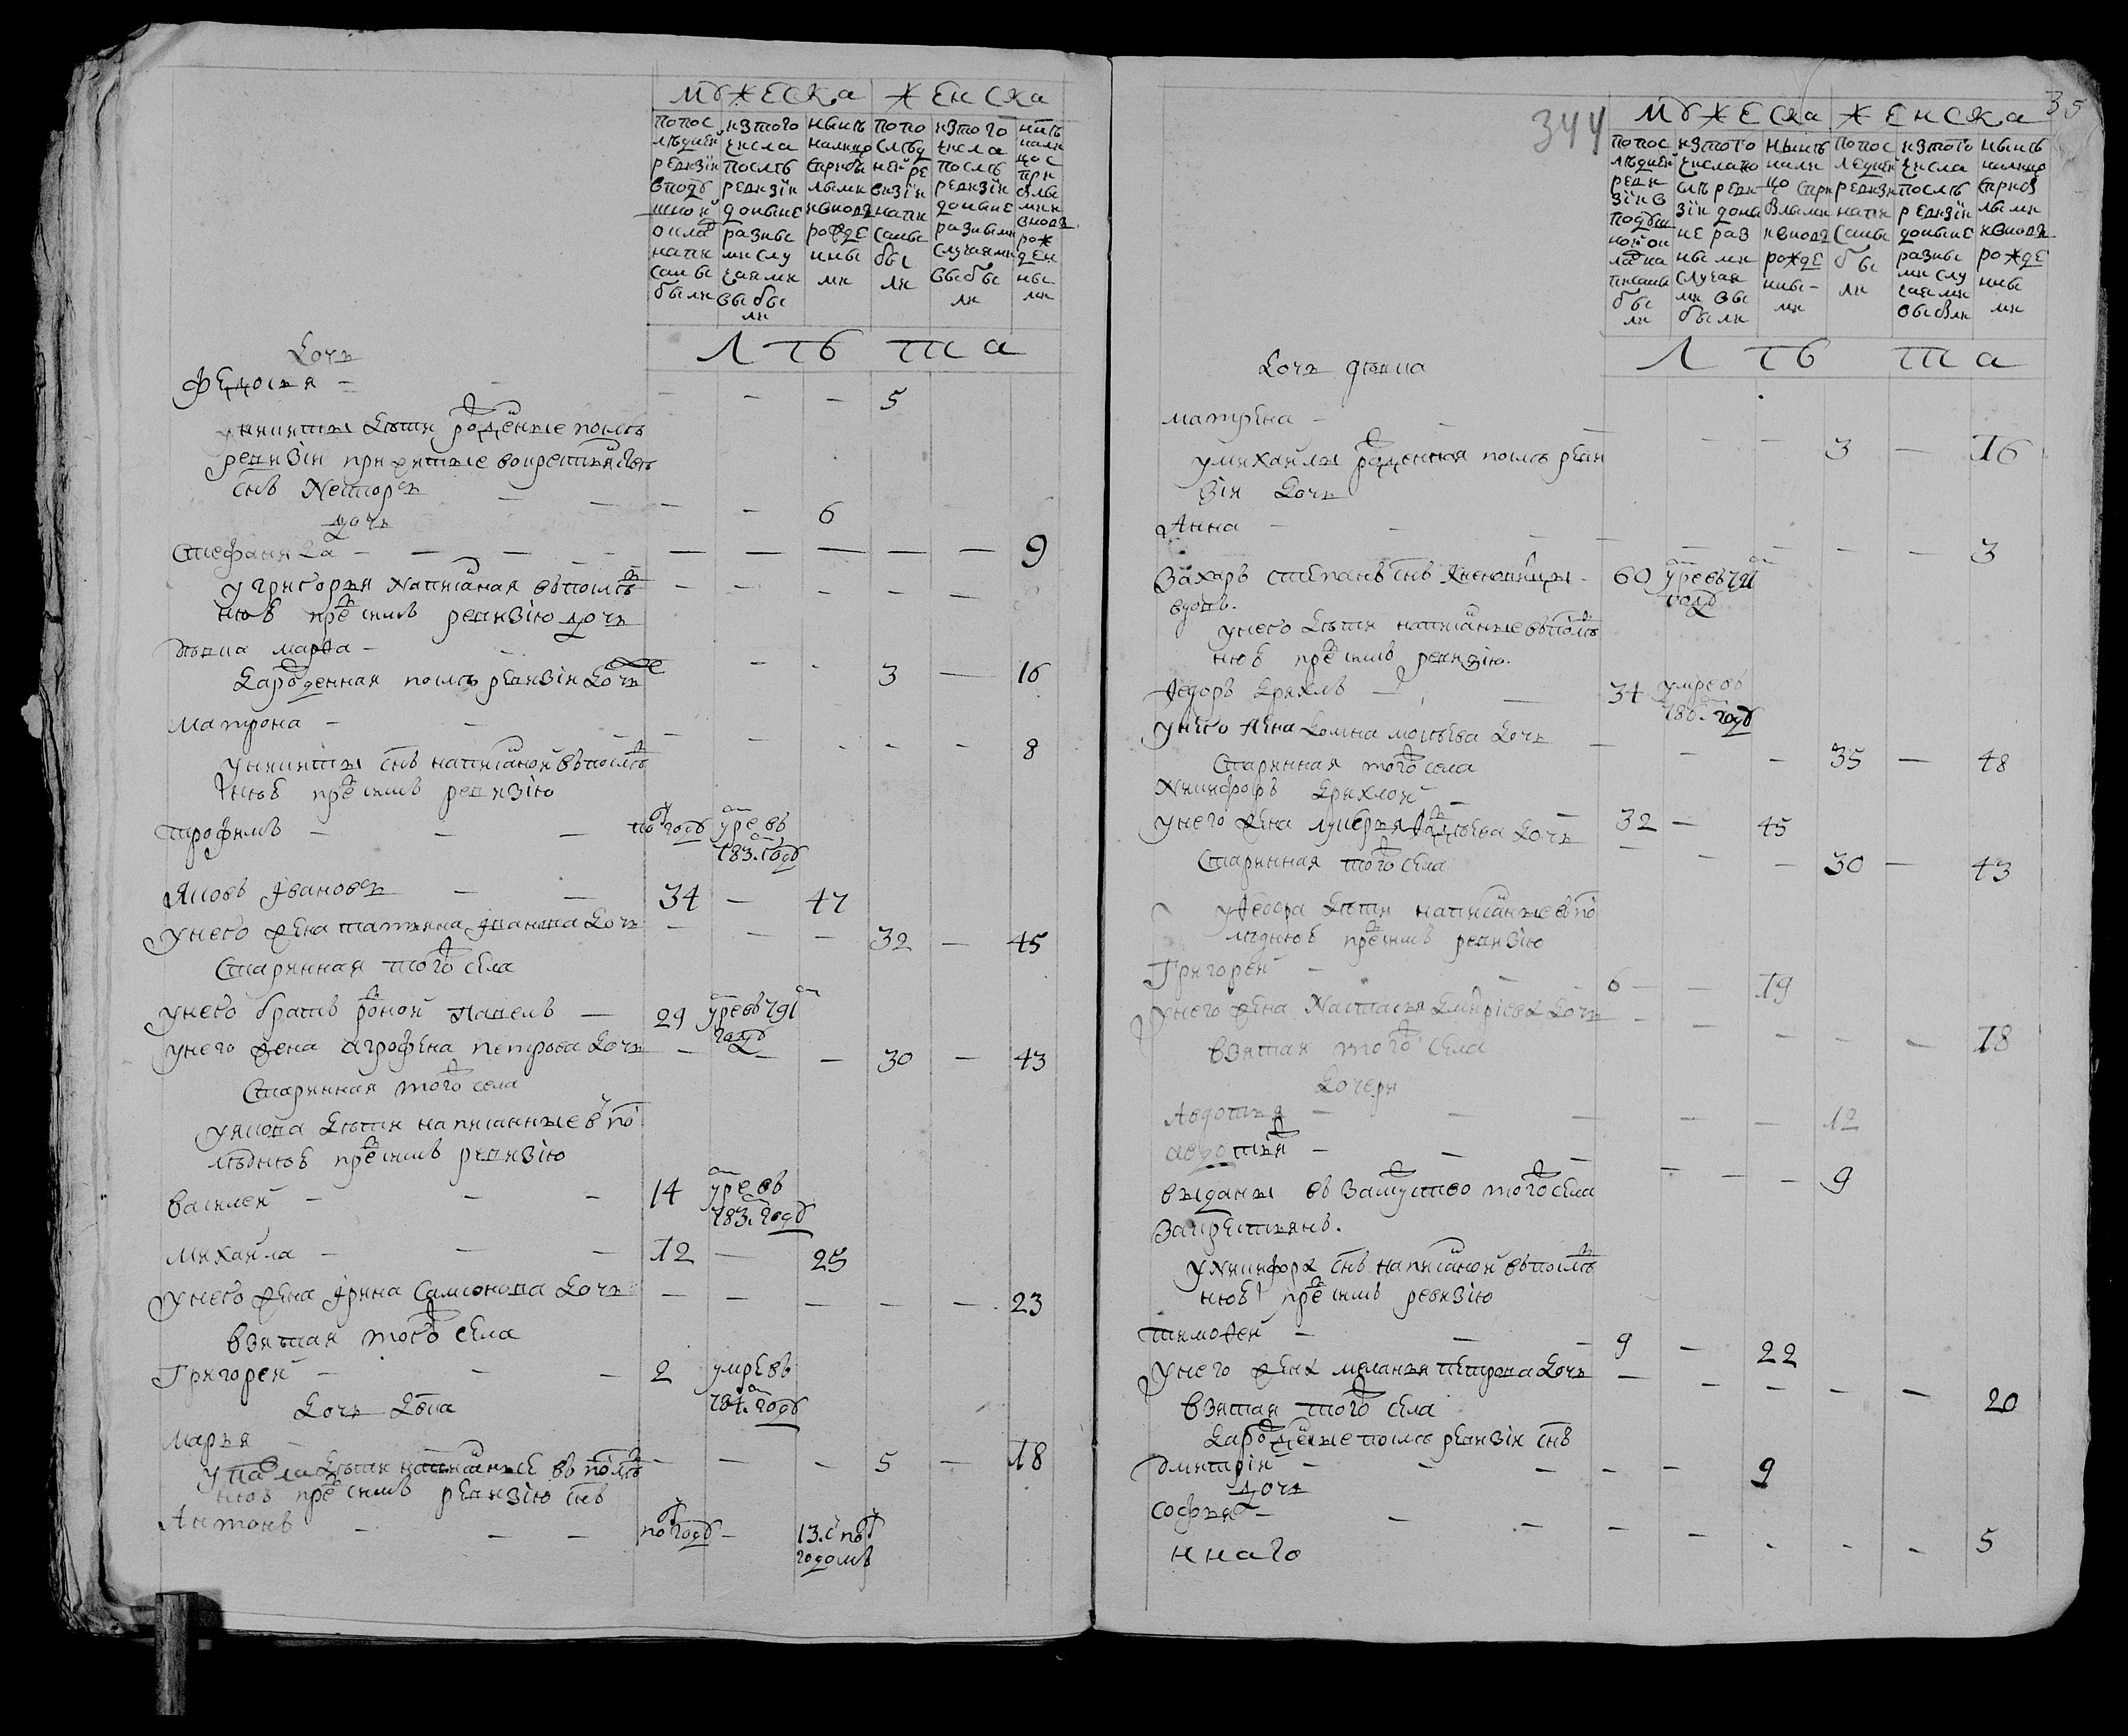 Мужеска Женска
попос лѣдней ревизіи вподушной окладъ напи саны были
изтого числа послѣ ревизіи доныне разны ми слу чаями выбы ли
нынѣ налицо сприбы лыми ивновь рожде нны ми
попо слѣд ней ре визіи напи саны бы ли
изтого числа послѣ ревизіи доныне разными случаями выбы ли
нынѣ нали цо с при былы ми и вновь рож ден ны ми
Лѣта
дочь
Федосья – – – – – 5
уникиты дѣти рожденые послѣ
ревизіи
снъ Несторъ – – – – 6
дочь
Стефанида – – – – – – – – – 9
Угригорья написаная впослѣд
нюю пред симъ ревизію дочь
девка марфа – – – – 3 – 16
зарожденная послѣ ревизіи дочь
матрона – – – – – – – 8
уникиты снъ написаной впослѣд
нюю пред симъ ревизію
трофимъ – – – полгоду умре въ
783. году
Яковъ Ивановъ – – 34 – 47
унего жена татьяна Иванова дочь – – – 32 – 45
Старинная того села
унего братъ родной Павелъ – 29 умре въ 791
году
унего жена агрофена петрова дочь – – – 30 – 43
Старинная того села
уякова дѣти написанные в по
лѣднюю пред симъ ревизію
василей – – – 14 умре въ
783. году
михайла – – – 12 – 25
унего жена Ирина Самсонова дочь – – – – – 23
взятая того села
Григорей – – – 2 умре въ
784. году
дочь девка
марья – – – – 5 – 18
упавла дѣти написанные въ послѣд
нюю пред симъ ревизію снъ
Антонъ – – – полгоду – 13. с пол
годомъ
344
35
Мужеска Женска
попос лѣдней реви зіи в подуш ной ок ладъ на писаны бы ли
изтого числа по слѣ реви зіи доны не раз ными случая ми вы были
нынѣ нали цо спри былыми ивновь рожде нны ми
попос ледней ревизіи напи саны бы ли
изтого числа послѣ ревизіи доныне разны ми слу чаями выбыли
нынѣ налицо сприбы лыми ивновь рожде нны ми
Лѣта
дочь девка
матрена – – – – – 3 – 16
умихайлы рожденная послѣ реви
зіи дочь
Анна – – – – – – – 3
Захаръ степанъ снъ 60 умре въ 791
вдовъ. году
унего дѣти написанные впослѣд
нюю пред симъ ревизію.
Федоръ – – 34 умре въ
780. году
унего жена Домна мосѣева дочь – – – 35 – 48
Старинная того села
Никифоръ – – 32 – 45
унего жена лукерья дочь – – – 30 – 43
Старинная того села
уФедора дѣти написанные впо
лѣднюю пред симъ ревизію
Григорей – – 6 – – 19
унего жена Настасья дочь – – – – – 18
взятая того села
дочери
Авдотья – – – – – 12
авдотья – – – – – – 9
выданы въ замужство того села
закрестьянъ.
уникифора снъ написаной впослѣд
нюю пред симъ ревизію
тимофей – – – 9 – 22
унего жена меланья петрова дочь – – – – – 20
взятая того села
зарожденые послѣ ревизіи снъ
дмитрій – – – – – 9
дочь
софья – – – – – – – – 5